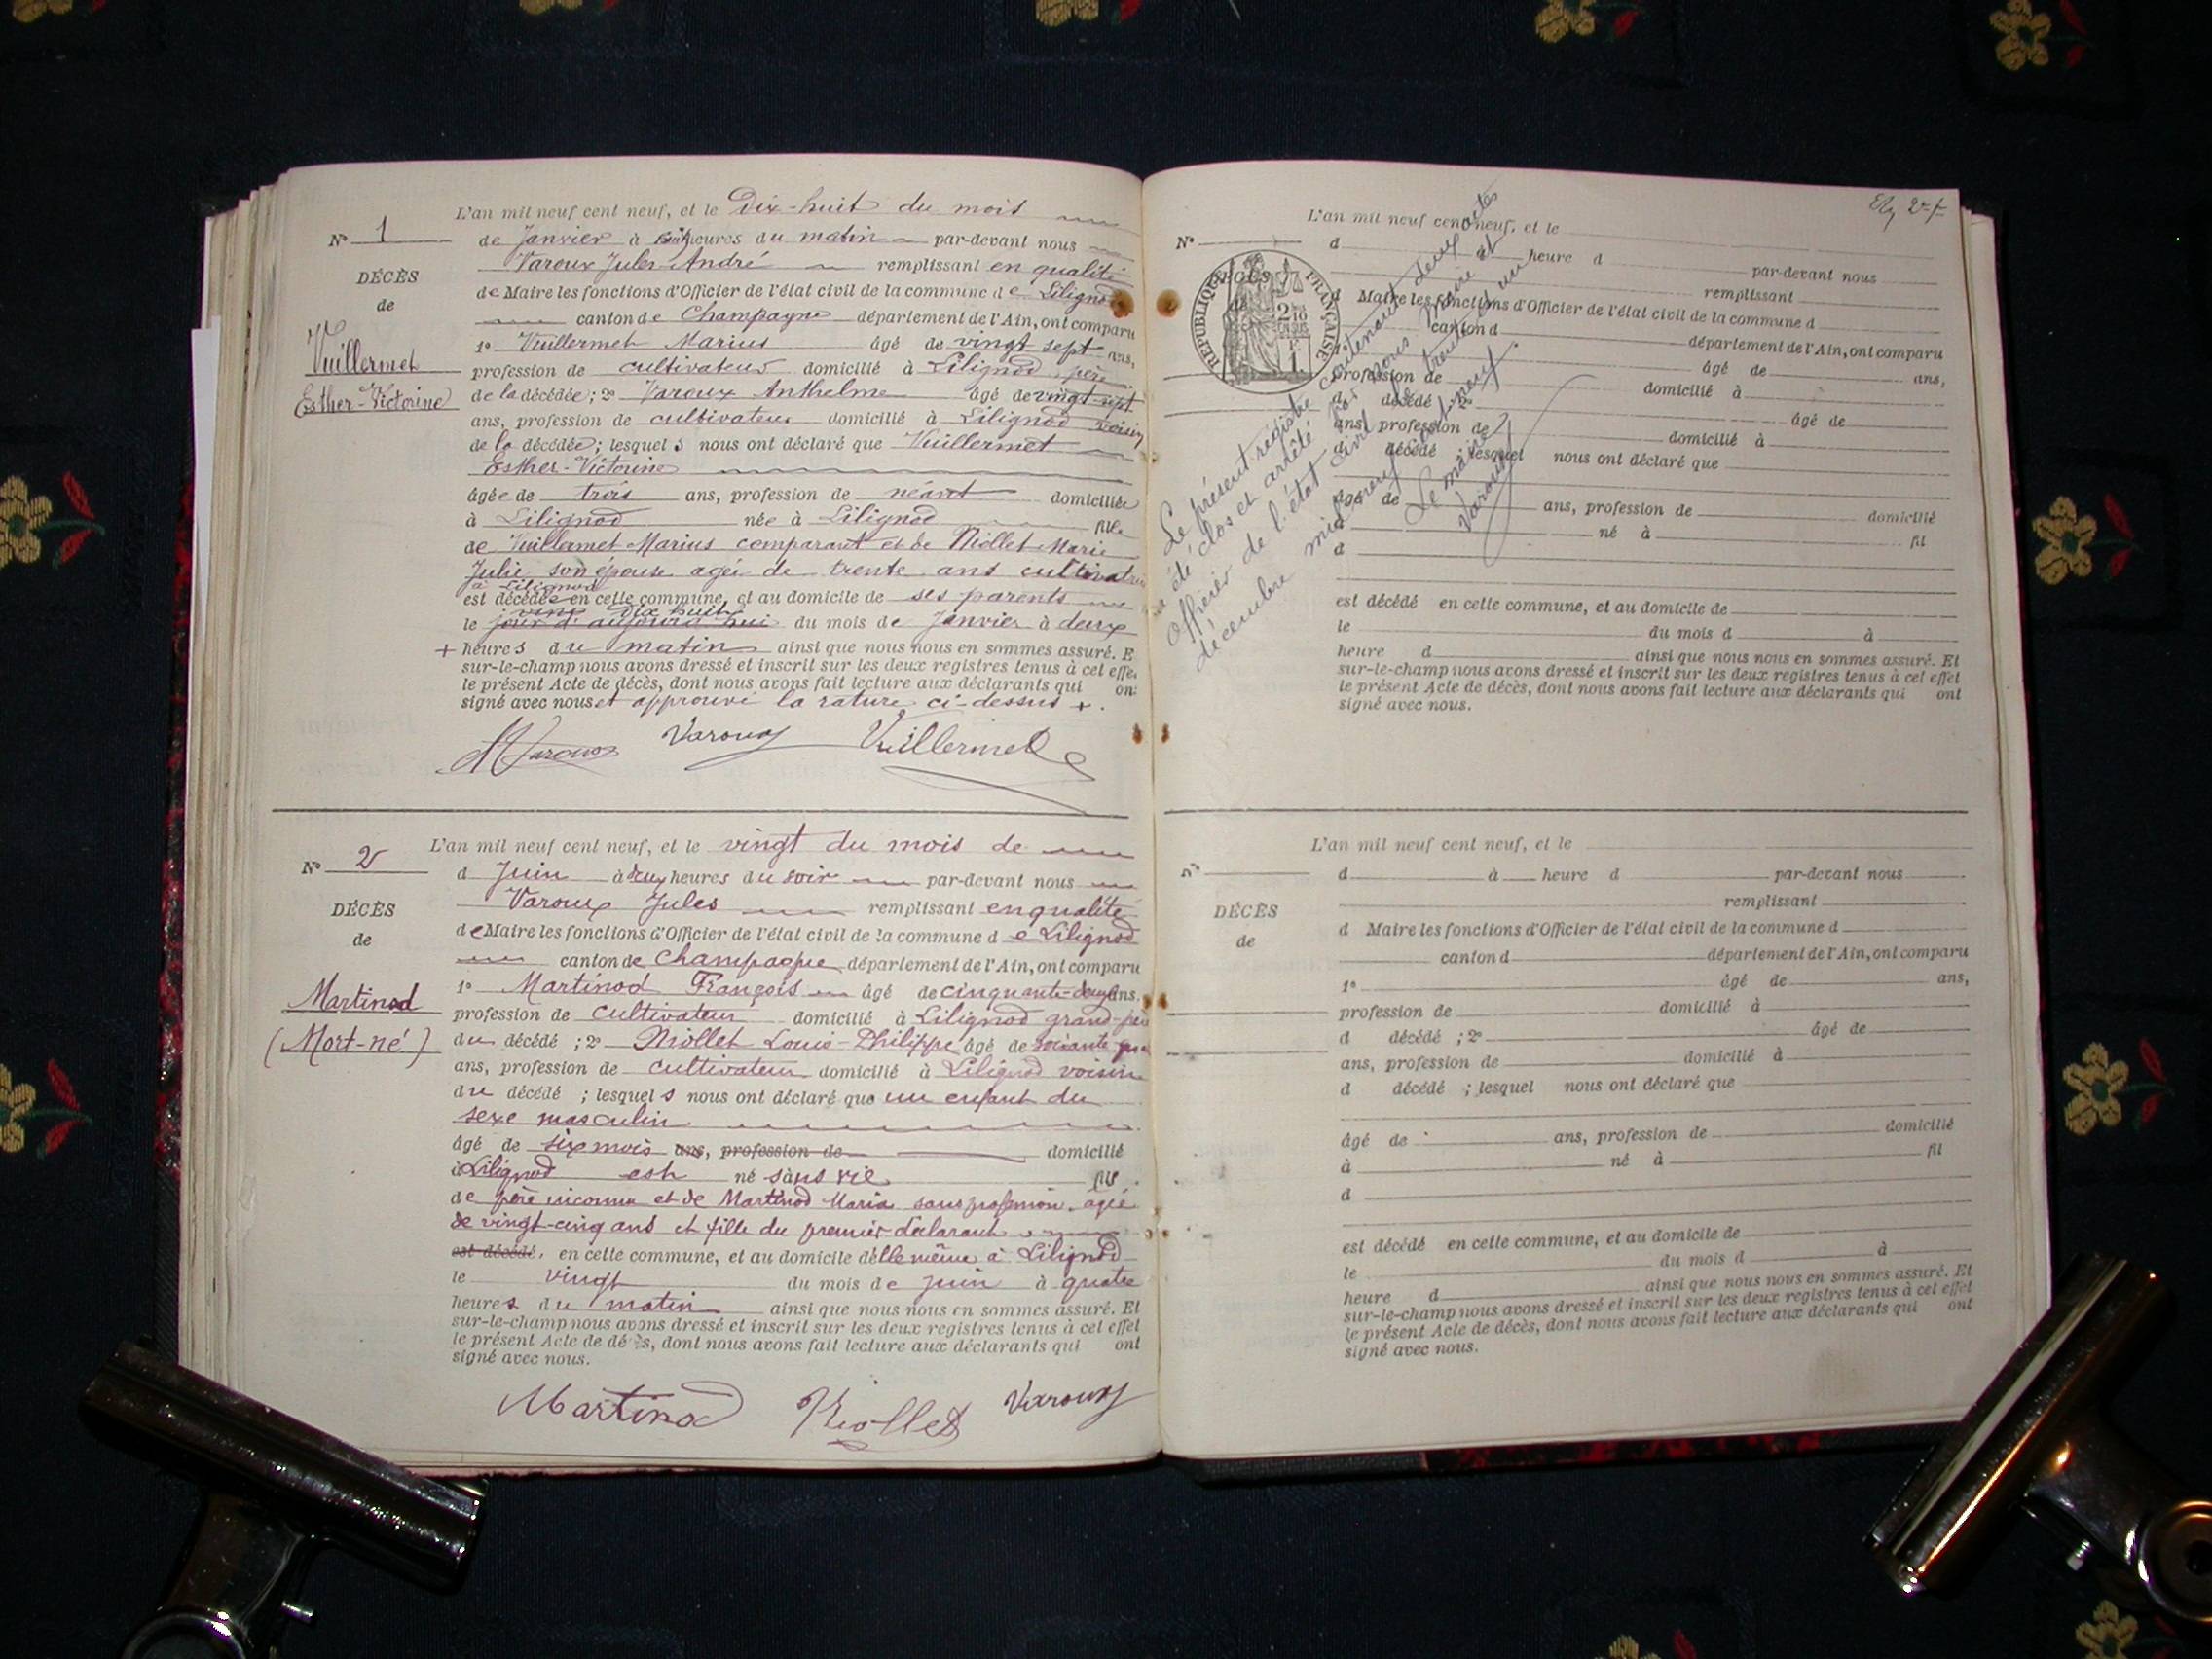 L'an mil neuf cent neuf, et le Dix-huit du mois
N° 1
de Janvier à heures du matin par-devant nous
Varoux Jules-André remplissant en qualité
DÉCÈS
de Maire les fonctions d'Officier de l'état civil de la commune de Lilignod
de
canton de Champagne département de l'Ain, ont comparu
1° Vuillermet Marius âgé de vingt sept ans,
Vuillermet
profession de cultivateur domicilié à Lilignod père
Esther-Victorine
de la décédée ; 2° Varoux Anthelme âgé de vingt-sept
ans, profession de cultivateur domicilié à Lilignod voisin
de la décédée ; lesquels nous ont déclaré que Vuillermet
Esther-Victorine
âgée de trois ans, profession de néant domiciliée
à Lilignod née à Lilignod fille
de Vuillermet Marius comparant et de Niollet Marie
Julie son épouse agée de trente ans cultivatrice
à Lilignod
est décédée en cette commune, et au domicile de ses parents
dix huit
le jour d'aujourd'hui du mois de Janvier à deux
+ heures du matin ainsi que nous nous en sommes assuré. E
sur-le-champ nous avons dressé et inscrit sur les deux registres tenus à cet effe
le présent Acte de décès, dont nous avons fait lecture aux déclarants qui on
signé avec nous et approuvé la rature ci-dessus +.
Varoux Vuillermet
N° 2
L'an mil neuf cent neuf, et le vingt du mois de
d Juin à deux heures du soir par-devant nous
Varoux Jules remplissant en qualité
DÉCÈS
de Maire les fonctions d'Officier de l'état civil de la commune de Lilignod
de
canton de Champagne département de l'Ain, ont comparu
Martinod
1° Martinod François âgé de cinquante-deux ans,
profession de cultivateur domicilié à Lilignod grand-père
(Mort-né)
du décédé ; 2° Niollet Louis-Philippe âgé de soixante
ans, profession de cultivateur domicilié à Lilignod voisin
du décédé ; lesquels nous ont déclaré que un enfant du
sexe masculin
âgé de six mois ans, profession de domicilié
à Lilignod est né sans vie fils
de père inconnu et de Martinod Maria sans profession, agée
de vingt-cinq ans et fille du premier déclarant
est décédé, en cette commune, et au domicile d'elle même à Lilignod
le vingt du mois de juin à quatre
heures du matin ainsi que nous nous en sommes assuré. Et
sur-le-champ nous avons dressé et inscrit sur les deux registres tenus à cet effet
le présent Acte de décès, dont nous avons fait lecture aux déclarants qui ont
signé avec nous.
Martinod Niollet Varoux
L'an mil neuf cent neuf, et le
N°
d à heure d par-devant nous
remplissant
DÉCÈS
de
RÉPUBLIQUE FRANÇAISE
d Maire les fonctions d'Officier de l'état civil de la commune d
canton d département de l'Ain, ont comparu
1° âgé de ans,
profession de domicilié à
d décédé ; 2° âgé de
ans, profession de domicilié à
d décédé ; lesquel nous ont déclaré que
âgé de ans, profession de domicilié
à né à fil
d
est décédé en cette commune, et au domicile de
le du mois d à
heure d ainsi que nous nous en sommes assuré. Et
sur-le-champ nous avons dressé et inscrit sur les deux registres tenus à cet effet
le présent Acte de décès, dont nous avons fait lecture aux déclarants qui ont
signé avec nous.
Le présent registre contenant deux actes
a été clos et arrêté par nous Maire et
Officier de l'état civil le trente et un
décembre mil neuf cent neuf.
Le maire
Varoux
L'an mil neuf cent neuf, et le
N°
d à heure d par-devant nous
remplissant
DÉCÈS
d Maire les fonctions d'Officier de l'état civil de la commune d
de
canton d département de l'Ain, ont comparu
1° âgé de ans,
profession de domicilié à
d décédé ; 2° âgé de
ans, profession de domicilié à
d décédé ; lesquel nous ont déclaré que
âgé de ans, profession de domicilié
à né à fil
d
est décédé en cette commune, et au domicile de
le du mois d à
heure d ainsi que nous nous en sommes assuré. Et
sur-le-champ nous avons dressé et inscrit sur les deux registres tenus à cet effet
le présent Acte de décès, dont nous avons fait lecture aux déclarants qui ont
signé avec nous.